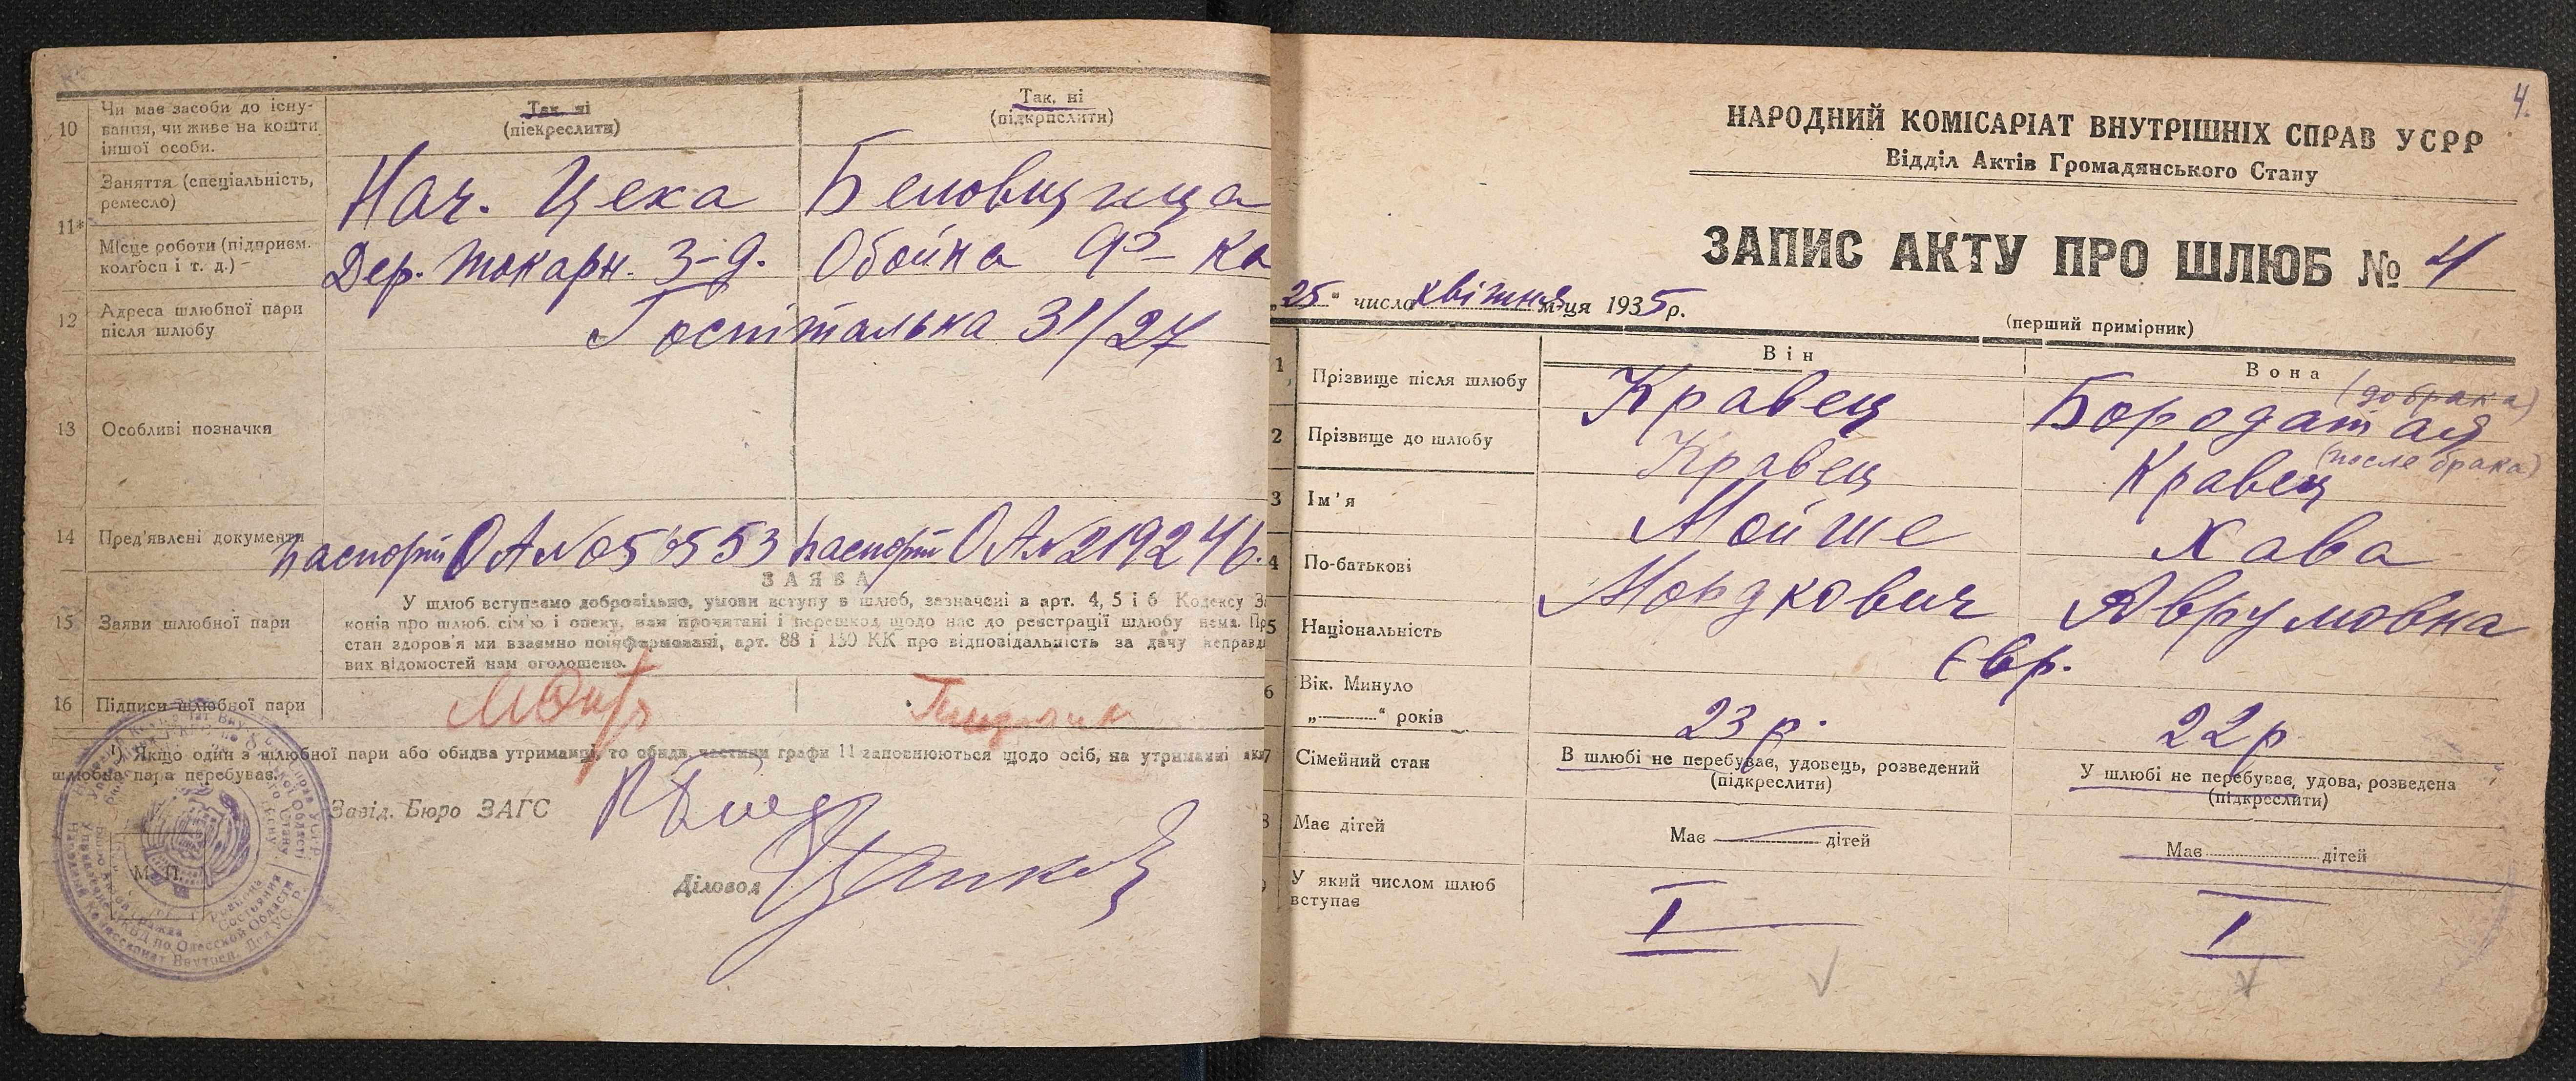 10 Чи має засоби до існу-
вання, чи живе на кошти
іншої особи.
Так, ні
(піекреслити)
Так, ні
(підкреслити)
11*
Заняття (спеціальність,
ремесло)
Нач. Цеха
Беловщица
Місце роботи (підприєм.
колгосп і т. д.)
Дер. Токарн. З-д.
Обойна ф-ка
12 Адреса шлюбної пари
після шлюбу
Госпітальна 31/27
13 Особливі позначки
14 Пред'явлені документи
паспорт ОА № 056553
паспорт ОА № 219246.
15 Заяви шлюбної пари
ЗАЯВА
У шлюб вступаємо добровільно, умови вступу в шлюб, зазначені в арт. 4, 5 і 6 Кодексу За
конів про шлюб. сім'ю і опеку, нам прочитані і перешкод щодо нас до реєстрації шлюбу нема. Пр
стан здоров'я ми взаємно поінформовані, арт. 88 і 130 КК про відповідальність за дачу неправд
вих відомостей нам оголошено.
16 Підписи шлюбної пари
¹) Якщо один з шлюбної пари або обидва утриманці, то обидв. частини графи 11 заповнюються щодо осіб, на утриманні яки
шлюбна пара перебуває.
Завід. Бюро ЗАГС
Діловод
М. П.
4.
НАРОДНИЙ КОМІСАРІАТ ВНУТРІШНІХ СПРАВ УСРР
Відділ Актів Громадянського Стану
ЗАПИС АКТУ ПРО ШЛЮБ № 4
„25" число квітня м-ця 1935 р.
(перший примірник)
Він
Вона
1 Прізвище після шлюбу
Кравец
Бородатая (до брака)
2 Прізвище до шлюбу
Кравец
Кравец (после брака)
3 Ім'я
Мойше
Хава
4 По-батькові
Мордкович
Аврумовна
5 Національність
Євр.
6 Вік. Минуло
„———" років
23 р.
22 р
7 Сімейний стан
В шлюбі не перебуває, удовець, розведений
(підкреслити)
У шлюбі не перебуває, удова, розведена
(підкреслити)
8 Має дітей
Має ——— дітей
Має ——— дітей
9 У який числом шлюб
вступає
I
I